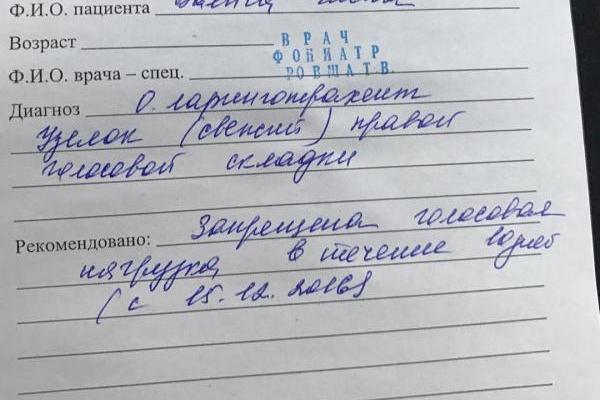 Ф.И.О. пациента
Возраст
ВРАЧ
ФОНИАТР
Ф.И.О. врача – спец.
Диагноз О. ларинготрахеит
Узелок (свежий) правой
голосовой складки
Рекомендовано: Запрещена голосовая
нагрузка в течение
(с 15.12.2016)